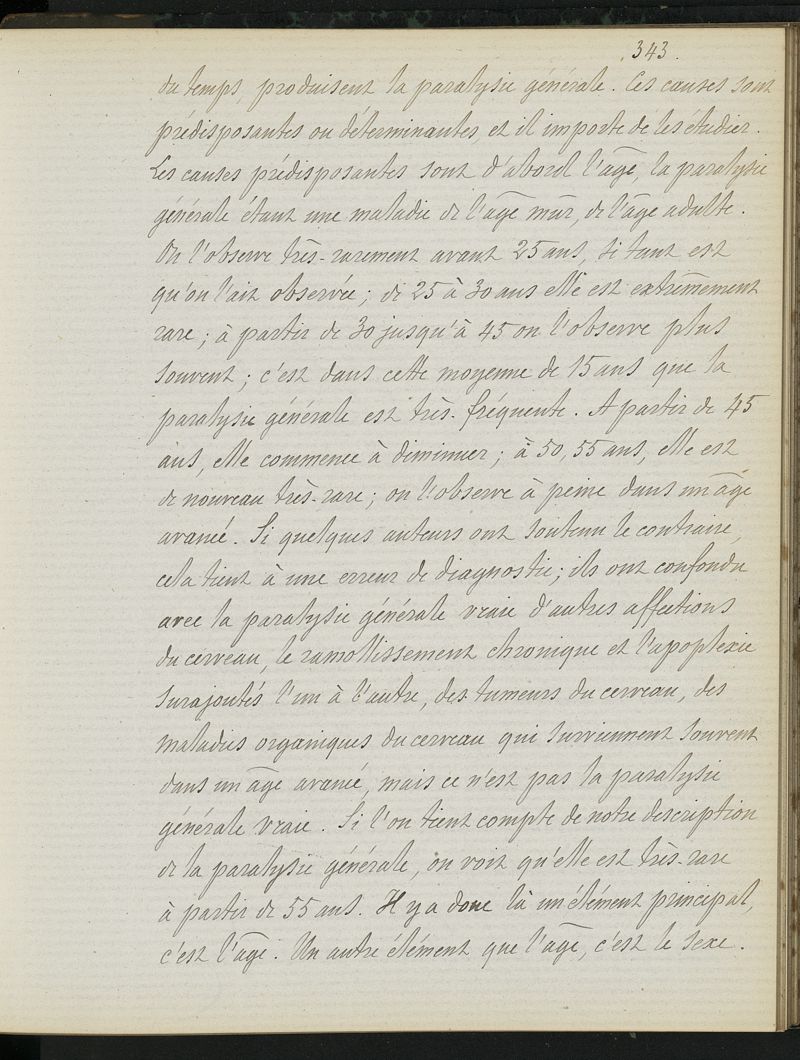 343.
du temps, produisent la paralysie générale. Ces causes sont
prédisposantes ou déterminantes, et il importe de les étudier.
Les causes prédisposantes sont d'abord l'âge, la paralysie
générale étant une maladie de l'âge mûr, de l'âge adulte.
On l'observe très-rarement avant 25 ans, si tant est
qu'on l'ait observée; de 25 à 30 ans elle est extrêmement
rare; à partir de 30 jusqu'à 45 on l'observe plus
souvent; c'est dans cette moyenne de 15 ans que la
paralysie générale est très-fréquente. A partir de 45
ans, elle commence à diminuer; à 50, 55 ans, elle est
de nouveau très-rare; on l'observe à peine dans un âge
avancé. Si quelques auteurs ont soutenu le contraire,
cela tient à une erreur de diagnostic; ils ont confondu
avec la paralysie générale vraie d'autres affections
du cerveau, le ramollissement chronique et l'apoplexie
surajoutés l'un à l'autre, des tumeurs du cerveau, des
maladies organiques du cerveau qui surviennent souvent
dans un âge avancé, mais ce n'est pas la paralysie
générale vraie. Si l'on tient compte de notre description
de la paralysie générale, on voit qu'elle est très-rare
à partir de 55 ans. Il y a donc là un élément principal,
c'est l'âge. Un autre élément que l'âge, c'est le sexe.